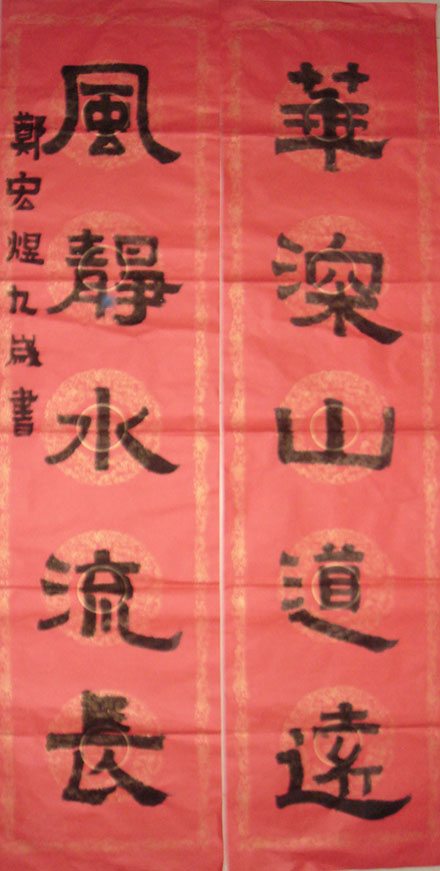 華深山道遠
風靜水流長
鄭宏煜九歲書